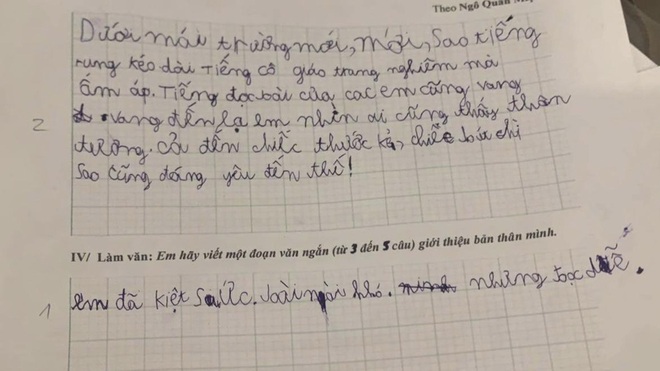 Theo Ngô Quân
Dưới mái trường mới, mới, Sao tiếng
rung kéo dài Tiếng cô giáo trang nghiêm mà
ấm áp. Tiếng đọc bài của các em cũng vang
vang đến lạ em nhìn ai cũng thấy thân
2
tương. cả đến chiếc thước kẻ, chiếc bút chì
Sao cũng đáng yêu đến thế!
IV/ Làm văn: Em hãy viết một đoạn văn ngắn (từ 3 đến 5 câu) giới thiệu bản thân mình.
em đã kiệt Sức. bài này khó. những đọc dễ.
1